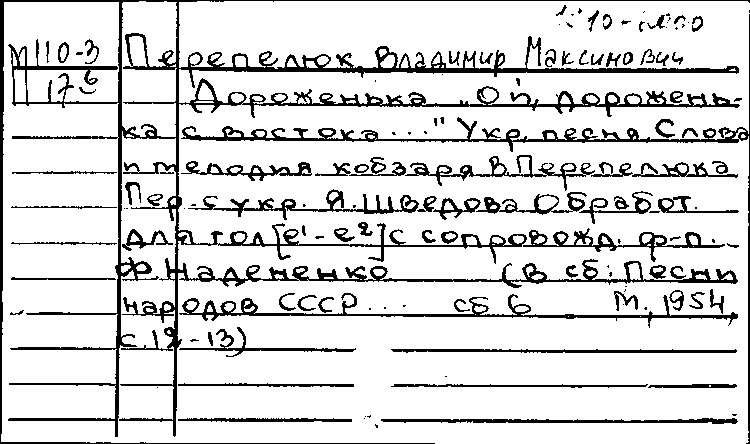 10-
М 110-3 Перепелюк, Владимир Максимович
17б Дороженька „Ой, дорожень-
ка с востока..." Укр. песня. Слова
и мелодия кобзаря В. Перепелюка
Пер. с укр. Я. Шведова Обработ.
для гол [e¹-e²] с сопровожд. ф-п.
Ф. Надененко (В сб: Песни
народов СССР... сб 6 М., 1954,
с. 12-13)